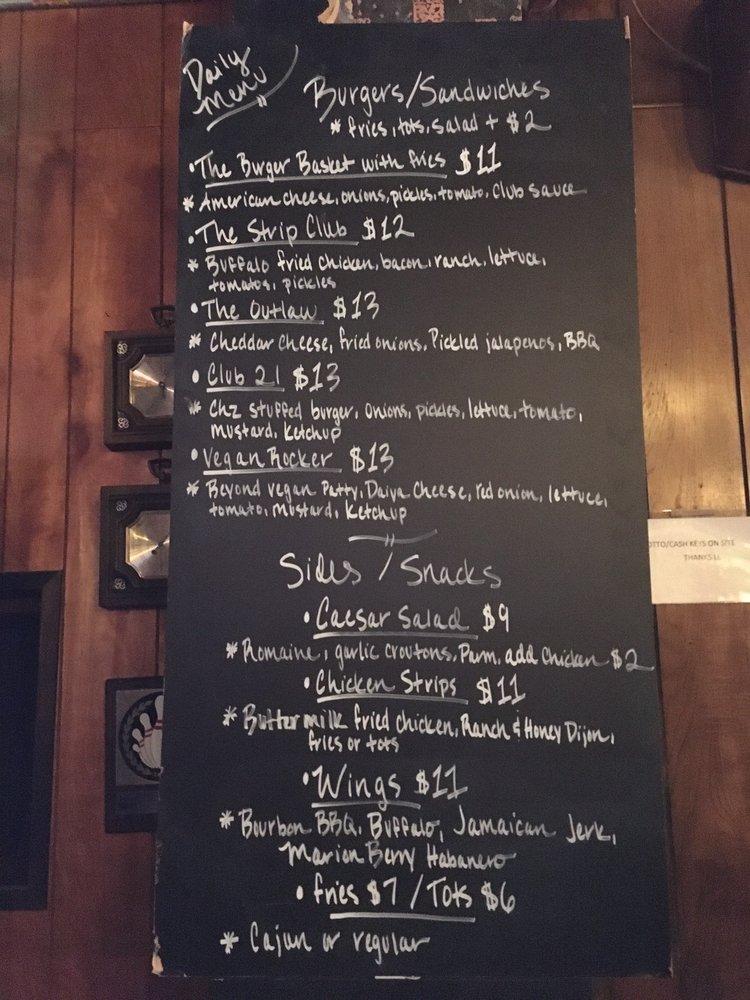 Daily
Menu
Burgers/Sandwiches
* fries, tots, salad + $2
• The Burger Basket with fries $11
* American cheese, onions, pickles, tomato, Club sauce
• The Strip Club $12
* Buffalo fried chicken, bacon, ranch, lettuce,
tomatos, pickles
• The Outlaw $13
* Cheddar cheese, fried onions, Pickled jalapenos, BBQ
• Club 21 $13
* Chz stuffed burger, onions, pickles, lettuce, tomato,
mustard, ketchup
• Vegan Rocker $13
* Beyond vegan Patty, Daiya Cheese, red onion, lettuce,
tomato, mustard, ketchup
OTTO/CASH KEYS ON SITE
THANKS
Sides / Snacks
• Caesar Salad $9
* Romaine, garlic croutons, Parm, add Chicken $2
• Chicken Strips $11
* Buttermilk fried chicken, Ranch & Honey Dijon,
fries or tots
• Wings $11
* Bourbon BBQ, Buffalo, Jamaican Jerk,
Marion Berry Habanero
• fries $7 / Tots $6
* Cajun or regular